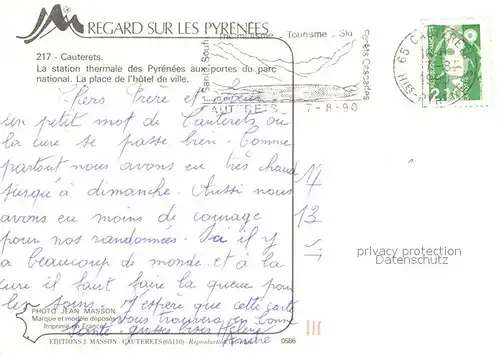 REGARD SUR LES PYRÉNÉES
217 - Cauterets.
La station thermale des Pyrénées aux portes du parc
national. La place de l'hôtel de ville.
Thermalisme Tourisme - Ski
Forêts Cascades
CAUTERETS
7-8-90
65 CAUTERETS
Chers Frère et
un petit mot de Cauterets où
la cure se passe bien. Comme
partout nous avons eu très chaud
jusqu'à dimanche. Aussi nous
avons eu moins de courage
pour nos randonnées. Ici il y
a beaucoup de monde et à la
cure il faut faire la queue pour
les soins. J'espère que cette carte
vous trouvera en bonne
santé - grosses bises Hélène
André
PHOTO JEAN MASSON
Marque et modèle déposés
Imprimé en France
EDITIONS J. MASSON - CAUTERETS (65110) - Reproduction
0586
privacy protection
Datenschutz